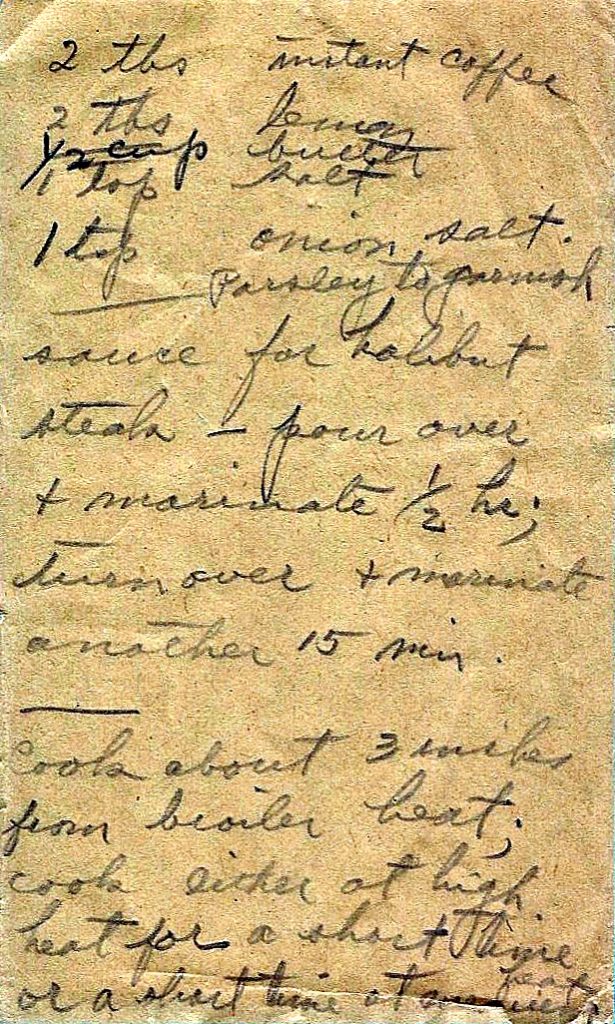 2 tbs instant coffee
2 tbs lemon
1/2 cup butter
1 tsp salt
1 tsp onion salt.
Parsley to garnish
sauce for halibut
steak – pour over
+ marinate 1/2 hr;
turn over + marinate
another 15 min.
cook about 3 inches
from broiler heat;
cook either at high
heat for a short time
or a short time at heat.